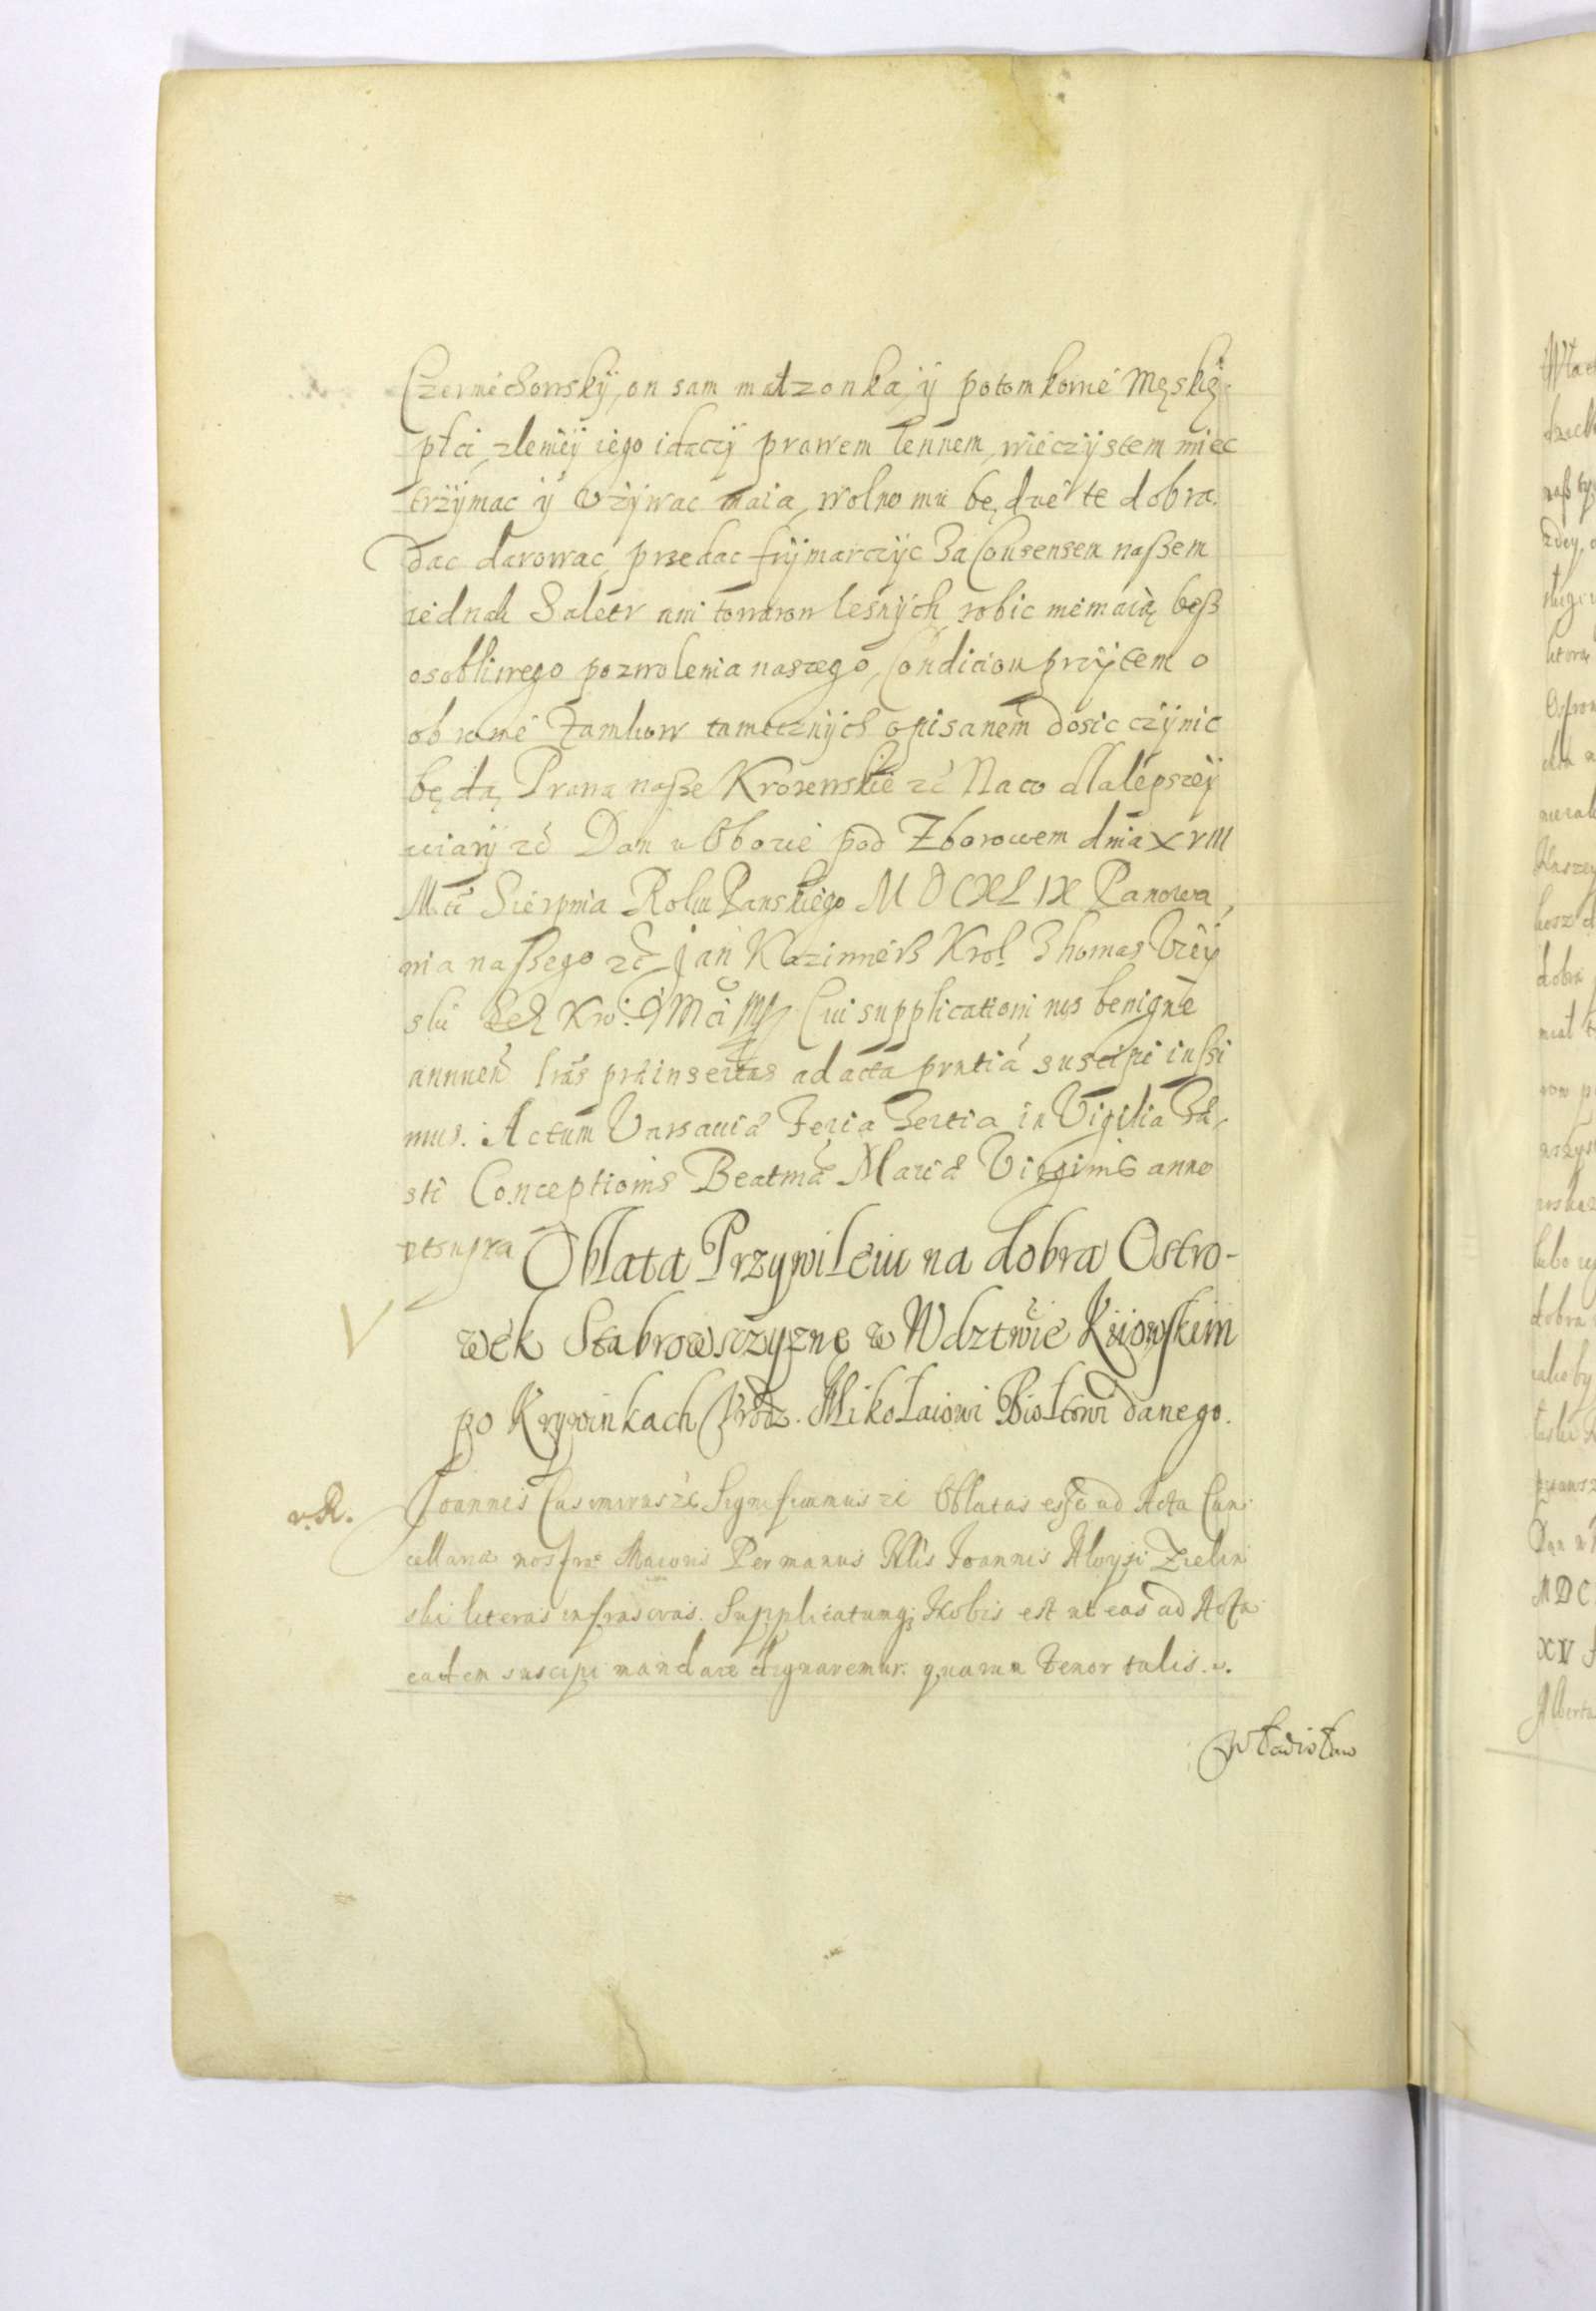 Czerniechowsky, on sam małzonka, y potomkowie Męskiey
płci zlemiey iego idaczy prawem lennem, wieczystem miec
trzymac y vzywac maia, wolno mu będzie te dobra
dac darowac, przedac frymarczyc Za Consensem naszem
iednak Saletr ani towarow lesnych robic niemaią besz
osobliwego pozwolenia naszego, Condiciom przytem o
obronie Zamkow tamecznych opisanem dosic czynic
będą, Prawa nasze Krolewskie zc Na co dla lepszey
wiary zc Dan w Obozie pod Zborowem dnia XVIII
Mca Sierpnia Roku Panskiego MDCXLIX Panowa
nia naszego zc Jan Kazimiersz Krol Thomas Viey
ski Sek Kro: J Mci Cui supplicationi nos benigne
annuen lras prainsertas ad acta prntia suscipi iussi
mus. Actum Varsavia Feria Tertia in Vigilia Fe
sti Conceptionis Beatma Maria Virginis anno
vtsupra Oblata Przywileiu na dobra Ostro-
wek Stabrowsczyznę w Wdztwie Kiiowskim
po Krywinkach Urodz. Mikołaiowi Biołtowi danego.
v. R. Joannes Casimirus zc Significamus zc Oblatas esse ad Acta Can
cellariæ nostræ Maioris Per manus Nlis Joannis Aloysi Zielin
ski literas infrascras. Supplicatumq; Nobis est ut eas ad Acta
eadem suscipi mandare dignaremur. quarum tenor talis.
Władisław